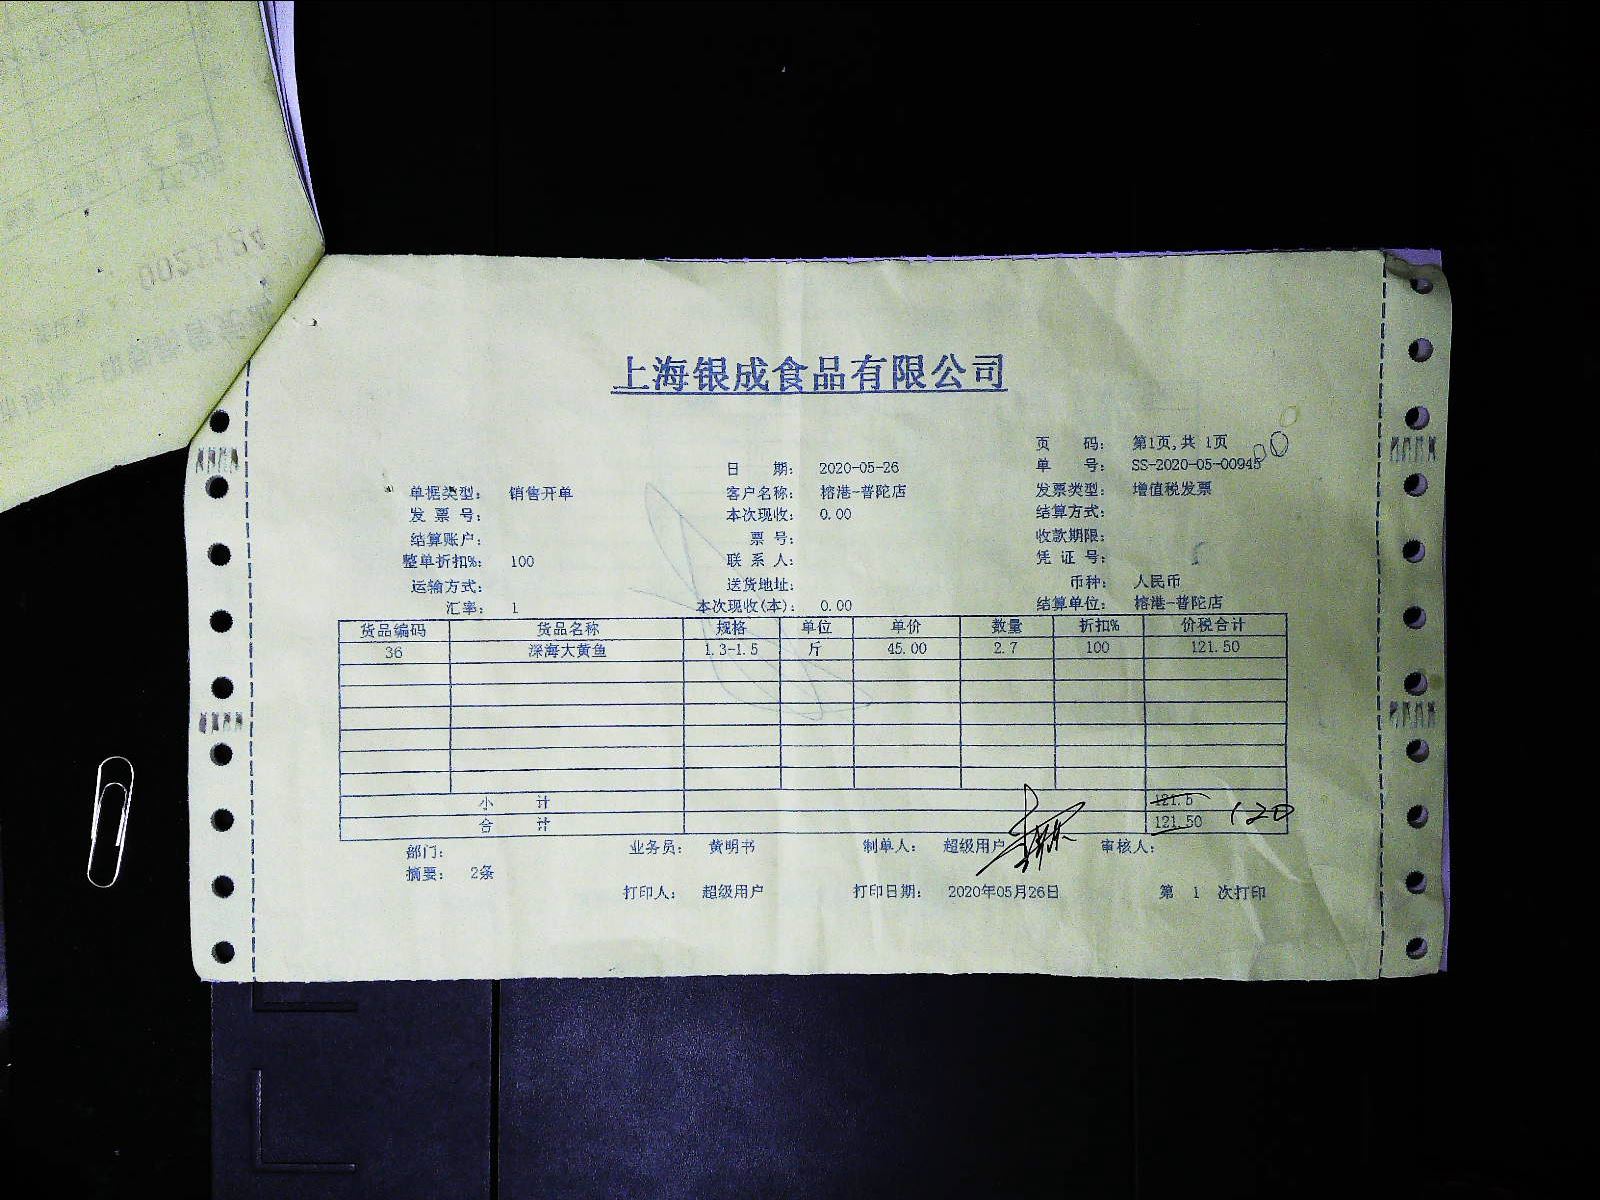 上海银成食品有限公司
页 码: 第1页,共 1页
日 期: 2020-05-26 单 号: SS-2020-05-00945
单据类型: 销售开单 客户名称: 榕港-普陀店 发票类型: 增值税发票
发 票 号: 本次现收: 0.00 结算方式:
结算账户: 票 号: 收款期限:
整单折扣%: 100 联 系 人: 凭 证 号:
运输方式: 送货地址: 币种: 人民币
汇率: 1 本次现收(本): 0.00 结算单位: 榕港-普陀店
货品编码 货品名称 规格 单位 单价 数量 折扣% 价税合计
36 深海大黄鱼 1.3-1.5 斤 45.00 2.7 100 121.50
小 计 121.5
合 计 121.50 120
部门: 业务员: 黄明书 制单人: 超级用户 审核人:
摘要: 2条
打印人: 超级用户 打印日期: 2020年05月26日 第 1 次打印